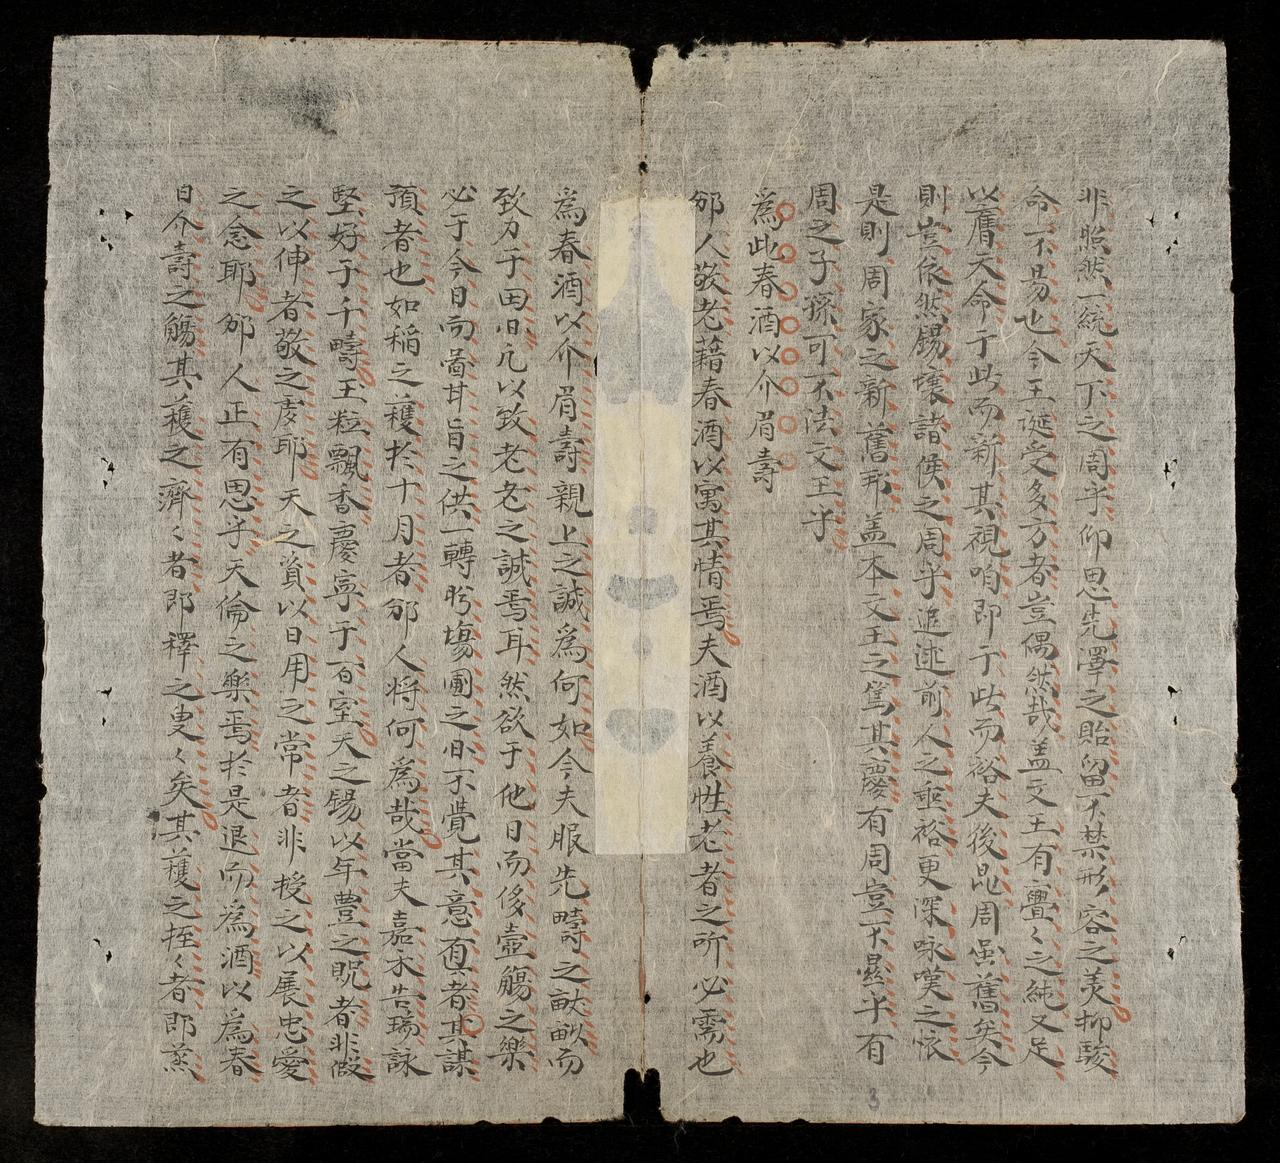 非照然一統天下之周乎仰思先澤之貽留不禁形容之美抑駿
命不易也今王誕受多方者豈偶然哉盖文王有亹〻之純又足
以膺天命于此而新其視响即于此而裕夫後昆周虽舊矣今
則豈依然錫壤諸侯之周乎追述前人之垂裕更深咏嘆之懷
是則周家之新舊邦盖本文王之篤其慶有周豈不顯乎有
周之子孫可不法文王乎
為此春酒以介眉壽
邠人敬老藉春酒以寓其情焉夫酒以養性老者之所必需也
為春酒以介眉壽親上之誠為何如今夫服先疇之畎畝而
致力于田旧凢以致老老之誠焉耳然欲于他日而侈壺觴之樂
必于今日而啚甘旨之供一轉盻塲圃之旧不覺其意有者其謀
預者也如稲之穫於十月者邠人将何為哉當夫嘉禾告瑞詠
堅好于千疇玉粒飄香慶寧于百室天之錫以年豊之貺者非假
之以伸者敬之虔耶天之資以日用之常者非授之以展忠愛
之念耶邠人正有思乎天倫之樂焉於是退而為酒以為春
日介壽之觴其穫之濟〻者即釋之叟〻矣其穫之挃〻者即蒸